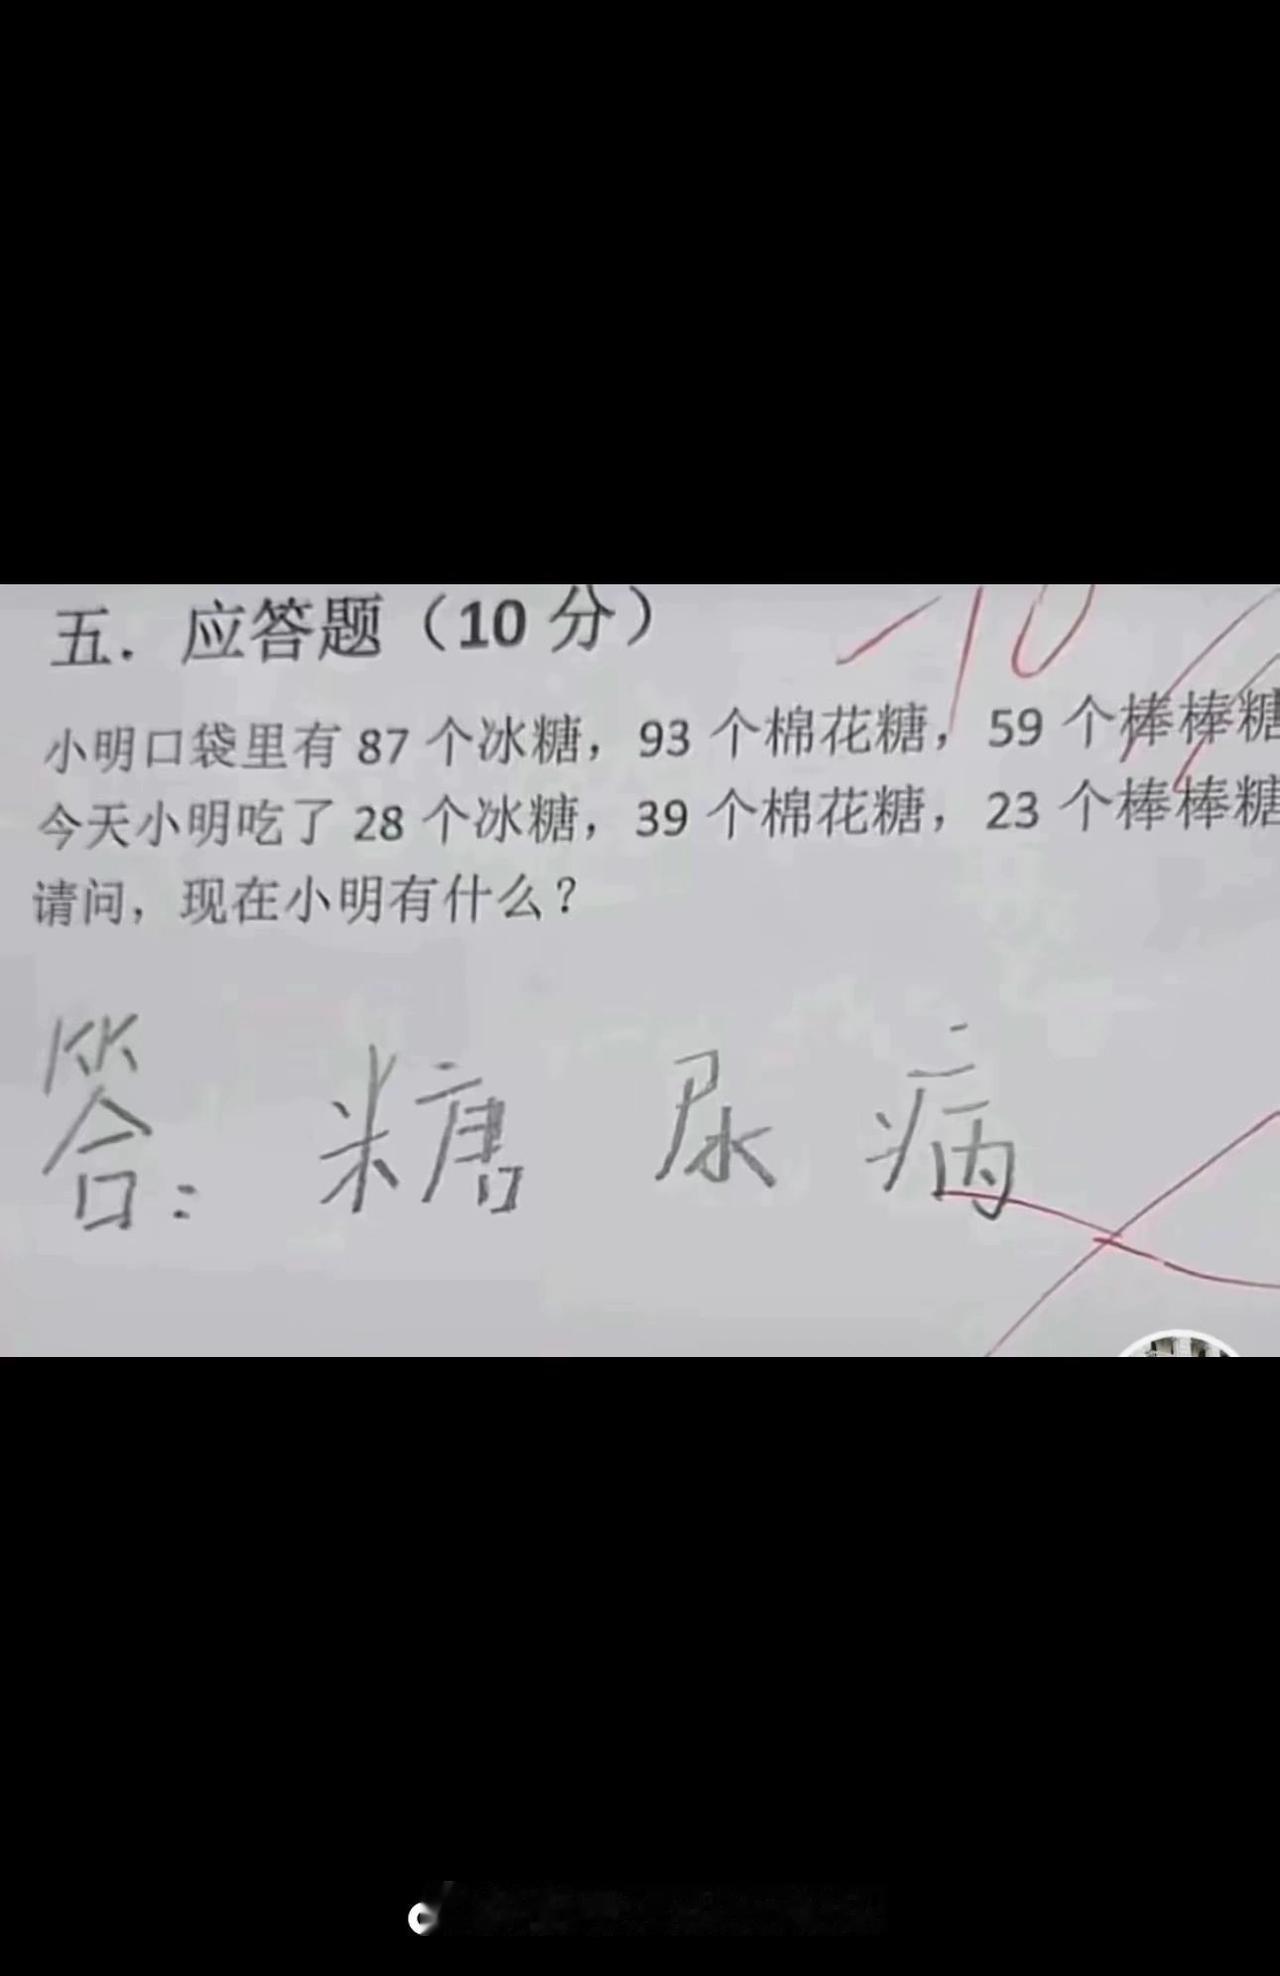 五. 应答题（10 分）
-10
小明口袋里有 87 个冰糖，93 个棉花糖，59 个棒棒糖
今天小明吃了 28 个冰糖，39 个棉花糖，23 个棒棒糖
请问，现在小明有什么？
答：糖 尿 病